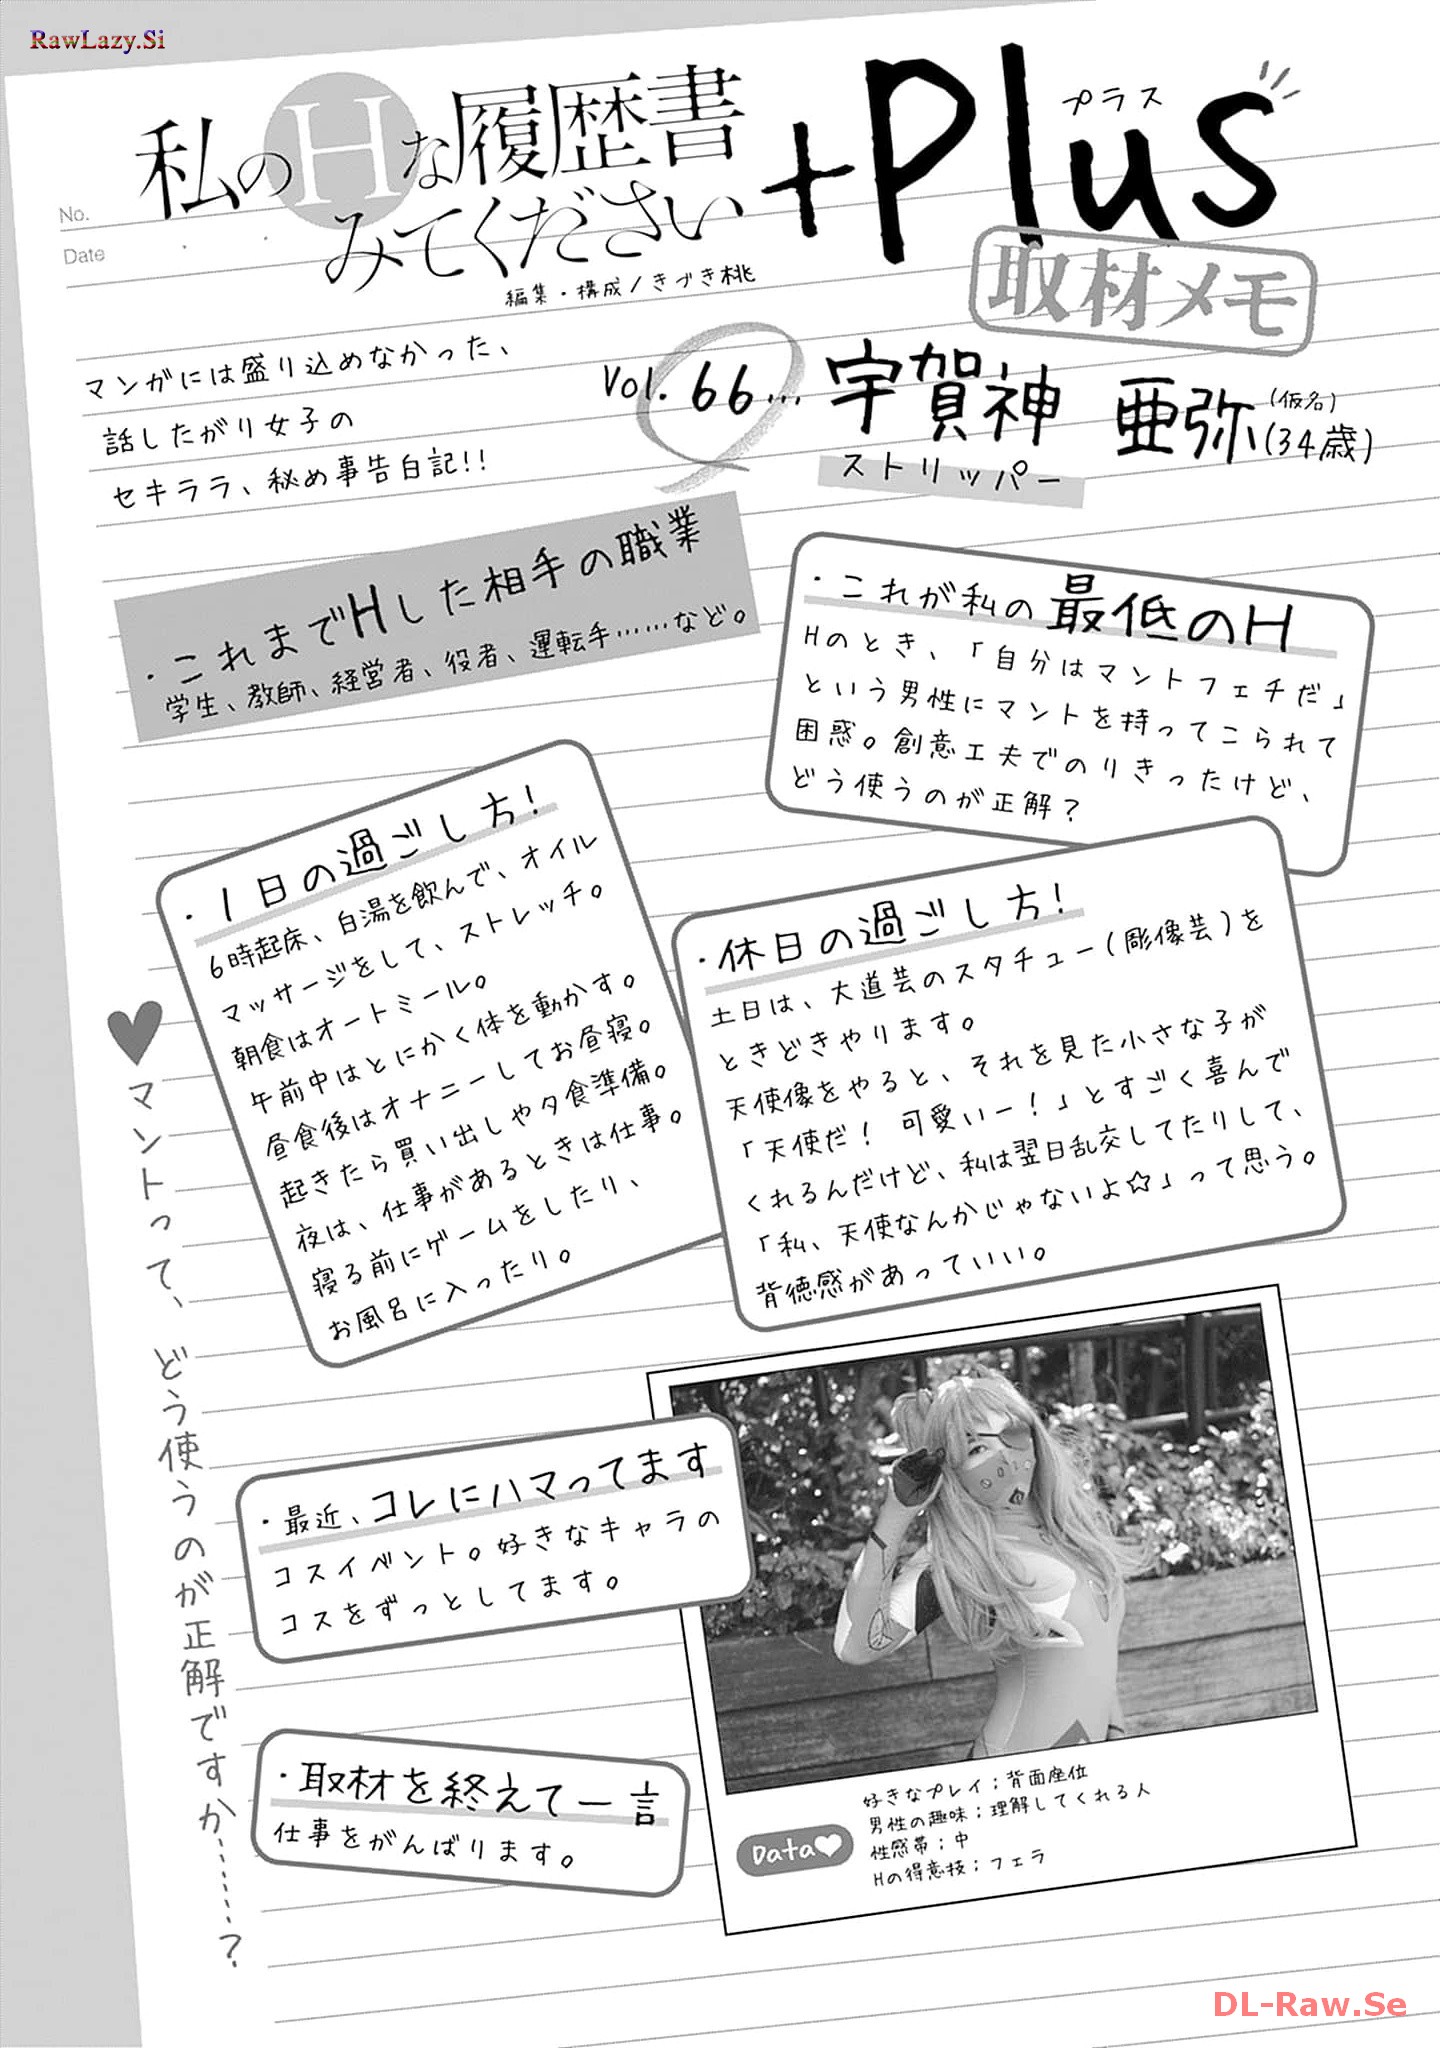 RawLazy.Si
No.
Date
私のHな履歴書
みてください
+Plus
プラス
編集・構成/きづき桃
取材メモ
マンガには盛り込めなかった、
話したがり女子の
セキララ、秘め事告白記!!
Vol. 66... 宇賀神 亜弥(仮名)(34歳)
ストリッパー
・これまでHした相手の職業
学生、教師、経営者、役者、運転手……など。
・これが私の最低のH
Hのとき、「自分はマントフェチだ」
という男性にマントを持ってこられて
困惑。創意工夫でのりきったけど、
どう使うのが正解?
・1日の過ごし方!
6時起床、白湯を飲んで、オイル
マッサージをして、ストレッチ。
朝食はオートミール。
午前中はとにかく体を動かす。
昼食後はオナニーしてお昼寝。
起きたら買い出しや夕食準備。
夜は、仕事があるときは仕事。
寝る前にゲームをしたり、
お風呂に入ったり。
・休日の過ごし方!
土日は、大道芸のスタチュー(彫像芸)を
ときどきやります。
天使像をやると、それを見た小さな子が
「天使だ! 可愛いー!」とすごく喜んで
くれるんだけど、私は翌日乱交してたりして、
「私、天使なんかじゃないよ☆」って思う。
背徳感があっていい。
♥マントって、どう使うのが正解ですか……?
・最近、コレにハマってます
コスイベント。好きなキャラの
コスをずっとしてます。
・取材を終えて一言
仕事をがんばります。
Data♥
好きなプレイ;背面座位
男性の趣味;理解してくれる人
性感帯;中
Hの得意技;フェラ
DL-Raw.Se